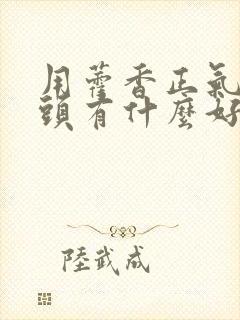 用藿香正氣
頭有什麼好
陸武成